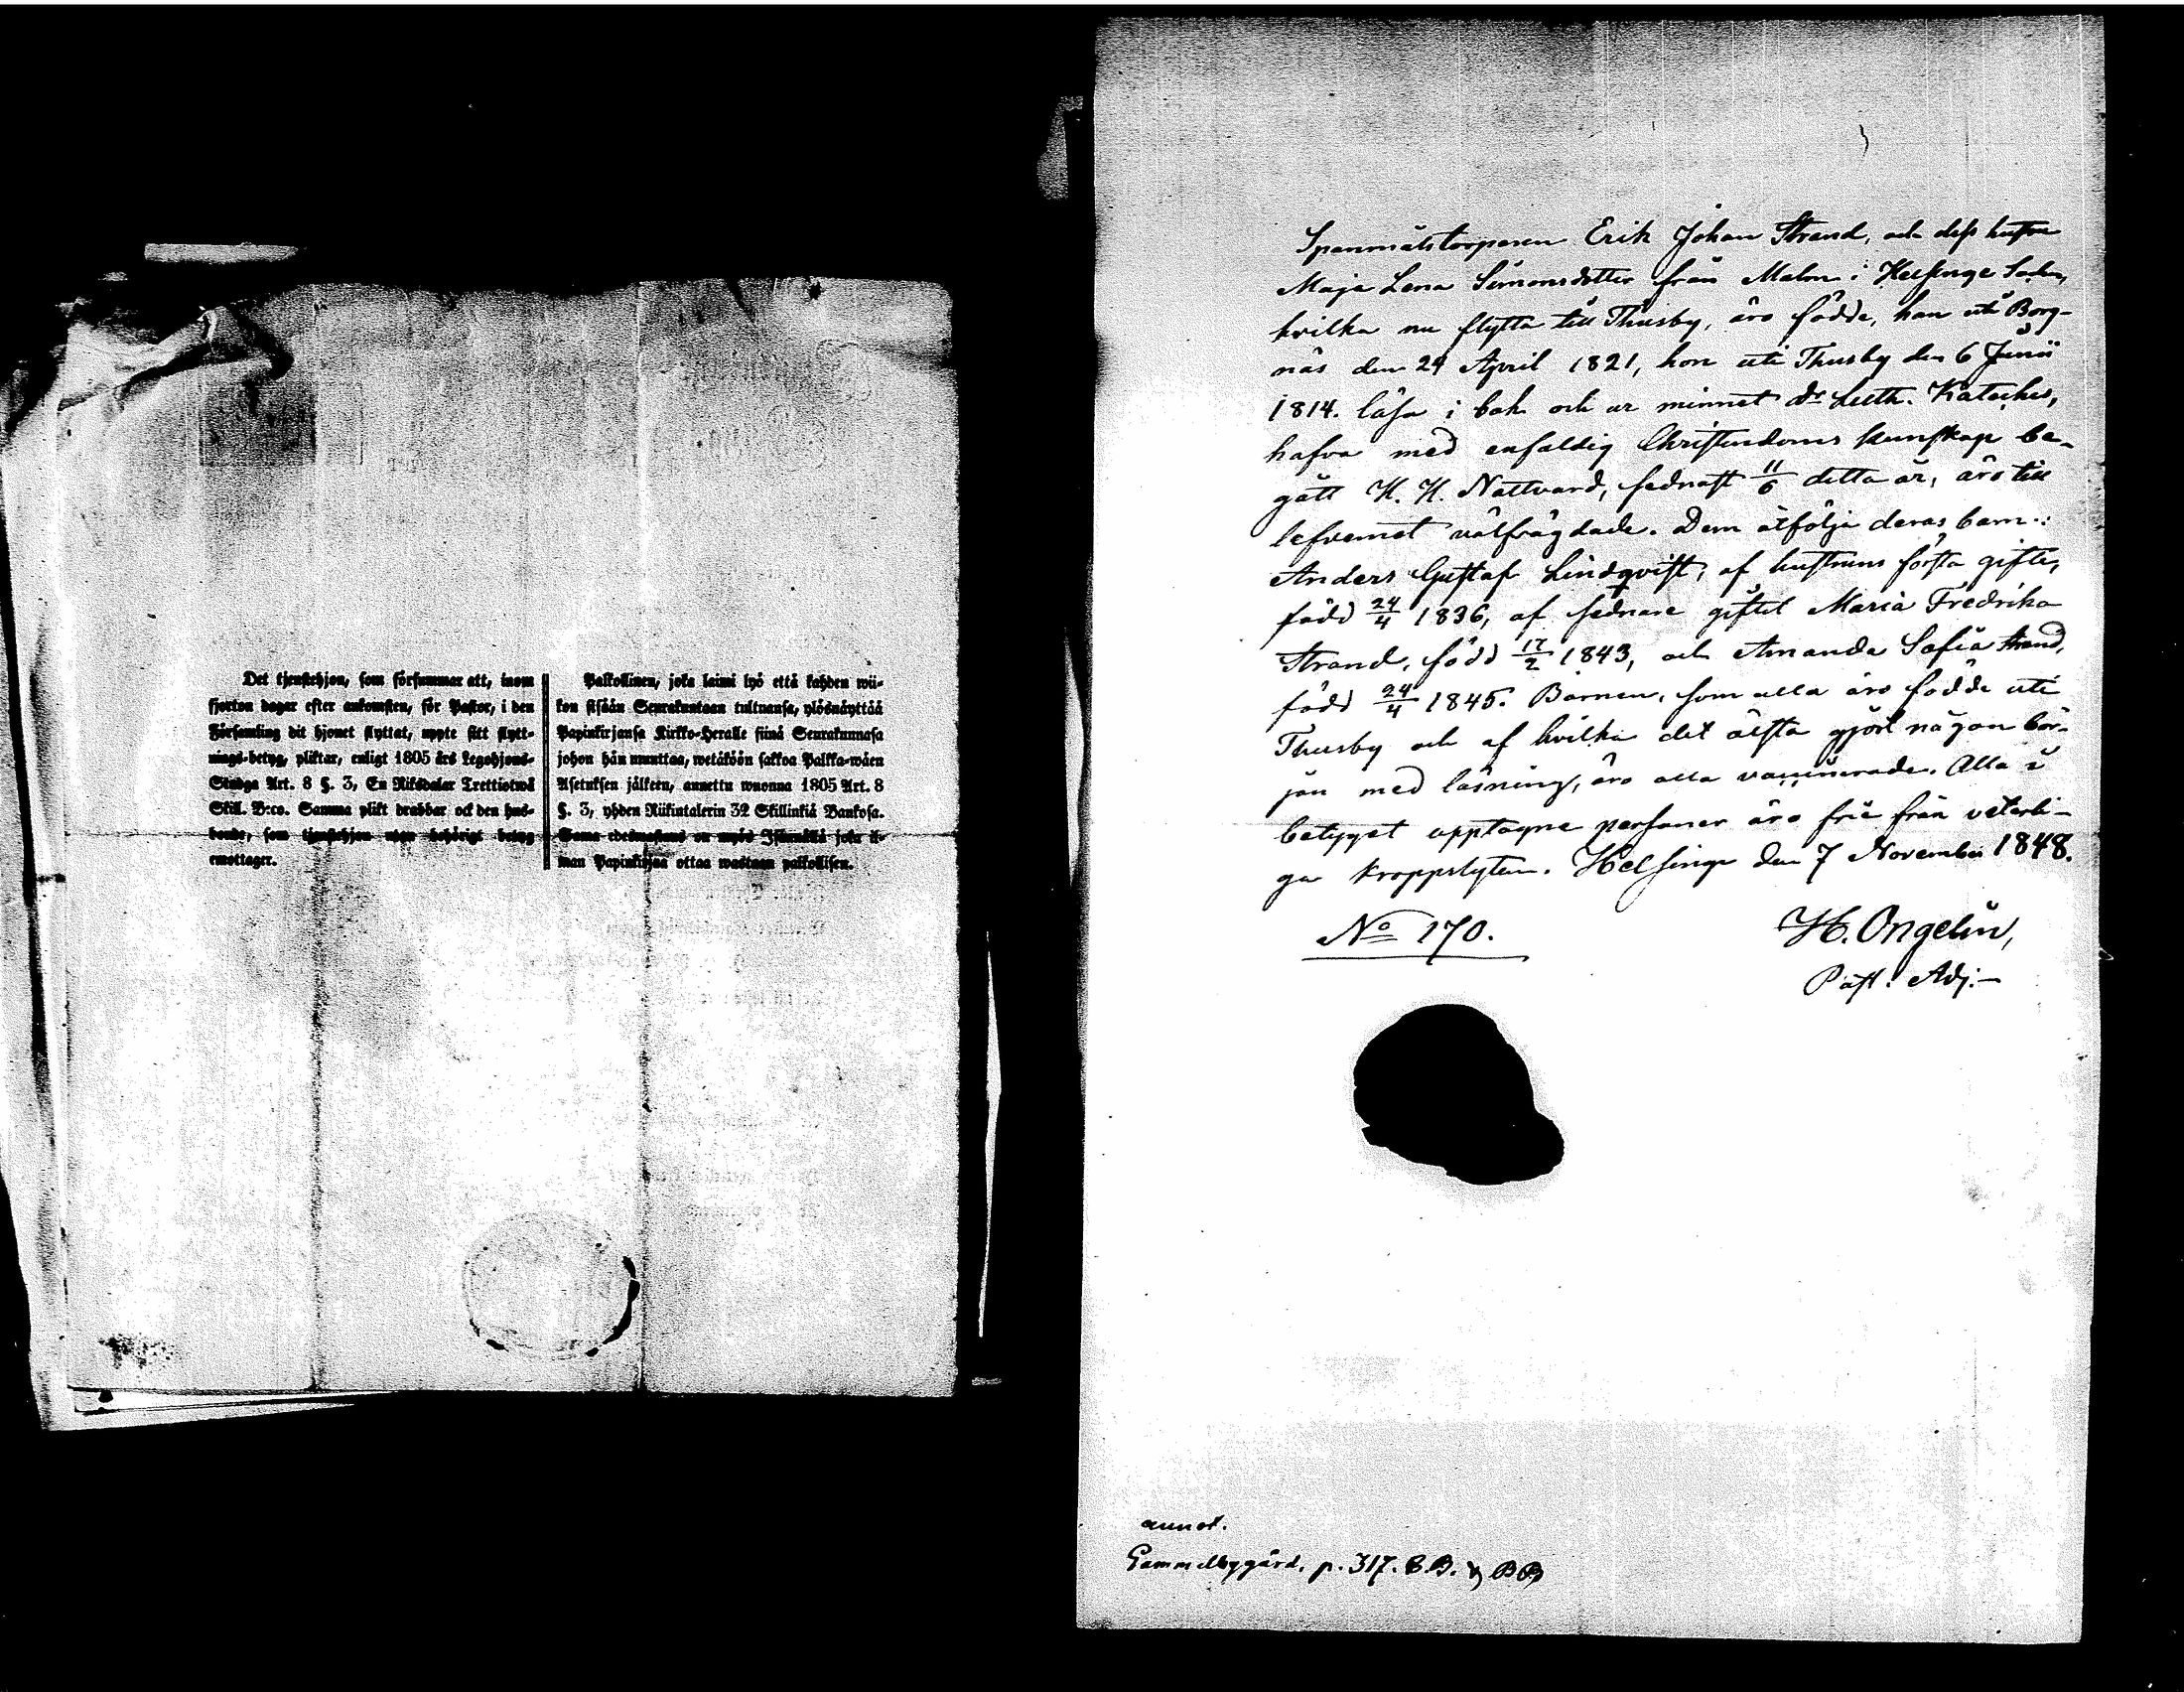 Det tjenstehjon, som försummar att, inom
fjorton dagar efter ankomsten, för Pastor, i den
Församling dit hjonet flyttat, uppte sitt flytt-
nings-betyg, pliktar, enligt 1805 års Legohjons-
Stadga Art. 8 §. 3, En Riksdaler Trettiotwå
Skill. B:co. Samma plikt drabbar ock den hus-
bonde, som tjenstehjon utan behörigt betyg
emottager.
Palkollinen, joka laimi lyö että kahden wii-
kon sisään Seurakuntaan tultuansa, ylösnäyttää
Papinkirjansa Kirkko-Herralle siinä Seurakunnasa
johon hän muuttaa, wetäköön sakkoa Palkka-wäen
Asetuksen jälkeen, annettu wuonna 1805 Art. 8
§. 3, yhden Riikintalerin 32 Skillinkiä Bankosa.
Sama edeswastaus on myös Isännällä joka il-
man Papinkirjaa ottaa wastaan palkollisen.
Spanmålstorparen Erik Johan Strand, och dess hustru
Maja Lena Simonsdotter från Malm i Helsinge Sockn,
hvilka nu flytta till Thusby, äro födde, han uti Borg-
näs den 24 April 1821, hon uti Thusby den 6 Junii
1814. läsa i bok och ur minnet Dr Luth. Kateches,
hafva med enfaldig Christendoms kunskap be-
gått H. H. Nattvard, sednast 11/6 detta år, äro till
lefvernet välfrägdade. Dem åtfölja deras barn:
Anders Gustaf Lindqvist, af hustruns första gifte,
född 24/4 1836, af sednare giftet Maria Fredrika
Strand, född 17/2 1843, och Amanda Sofia Strand,
född 24/4 1845. Barnen, som alla äro födde uti
Thusby och af hvilka det älsta gjort någon bör-
jan med läsning, äro alla vaccinerade. Alla i
betyget upptagne personer äro frie från veterli-
ga kroppslyten. Helsinge den 7 November 1848.
No 170.
H. Ongelin,
Past. Adj.
annot.
Gammelbygård. p. 317. C B. & B B